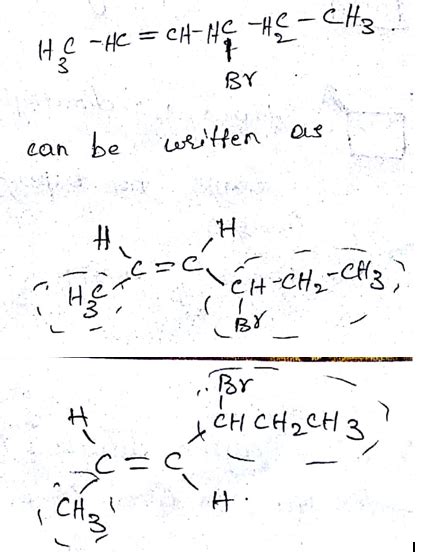 H3C-HC=CH-HC-H2C-CH3
Br
can be written as
H H
C=C
H3C CH-CH2-CH3
Br
Br
H CHCH2CH3
C=C
CH3 H.